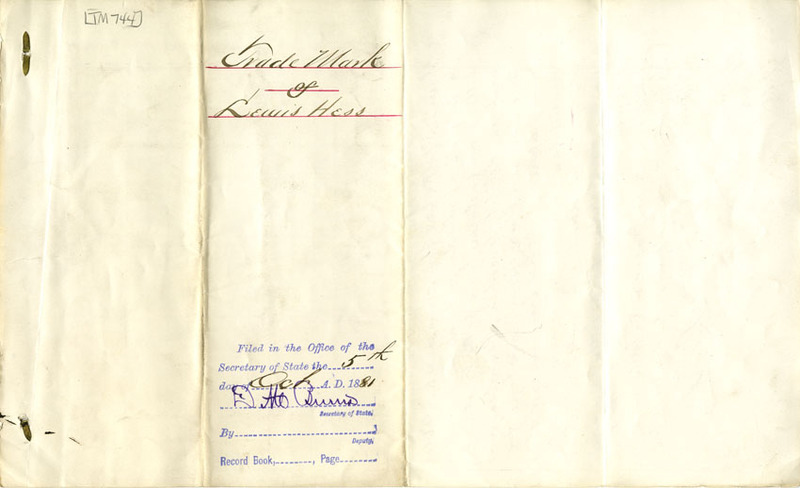 [TM744]
Trade Mark
of
Lewis Hess
Filed in the Office of the
Secretary of State the 5th
day of Oct A. D. 1881
D M Burns
Secretary of State,
By
Deputy,
Record Book, , Page